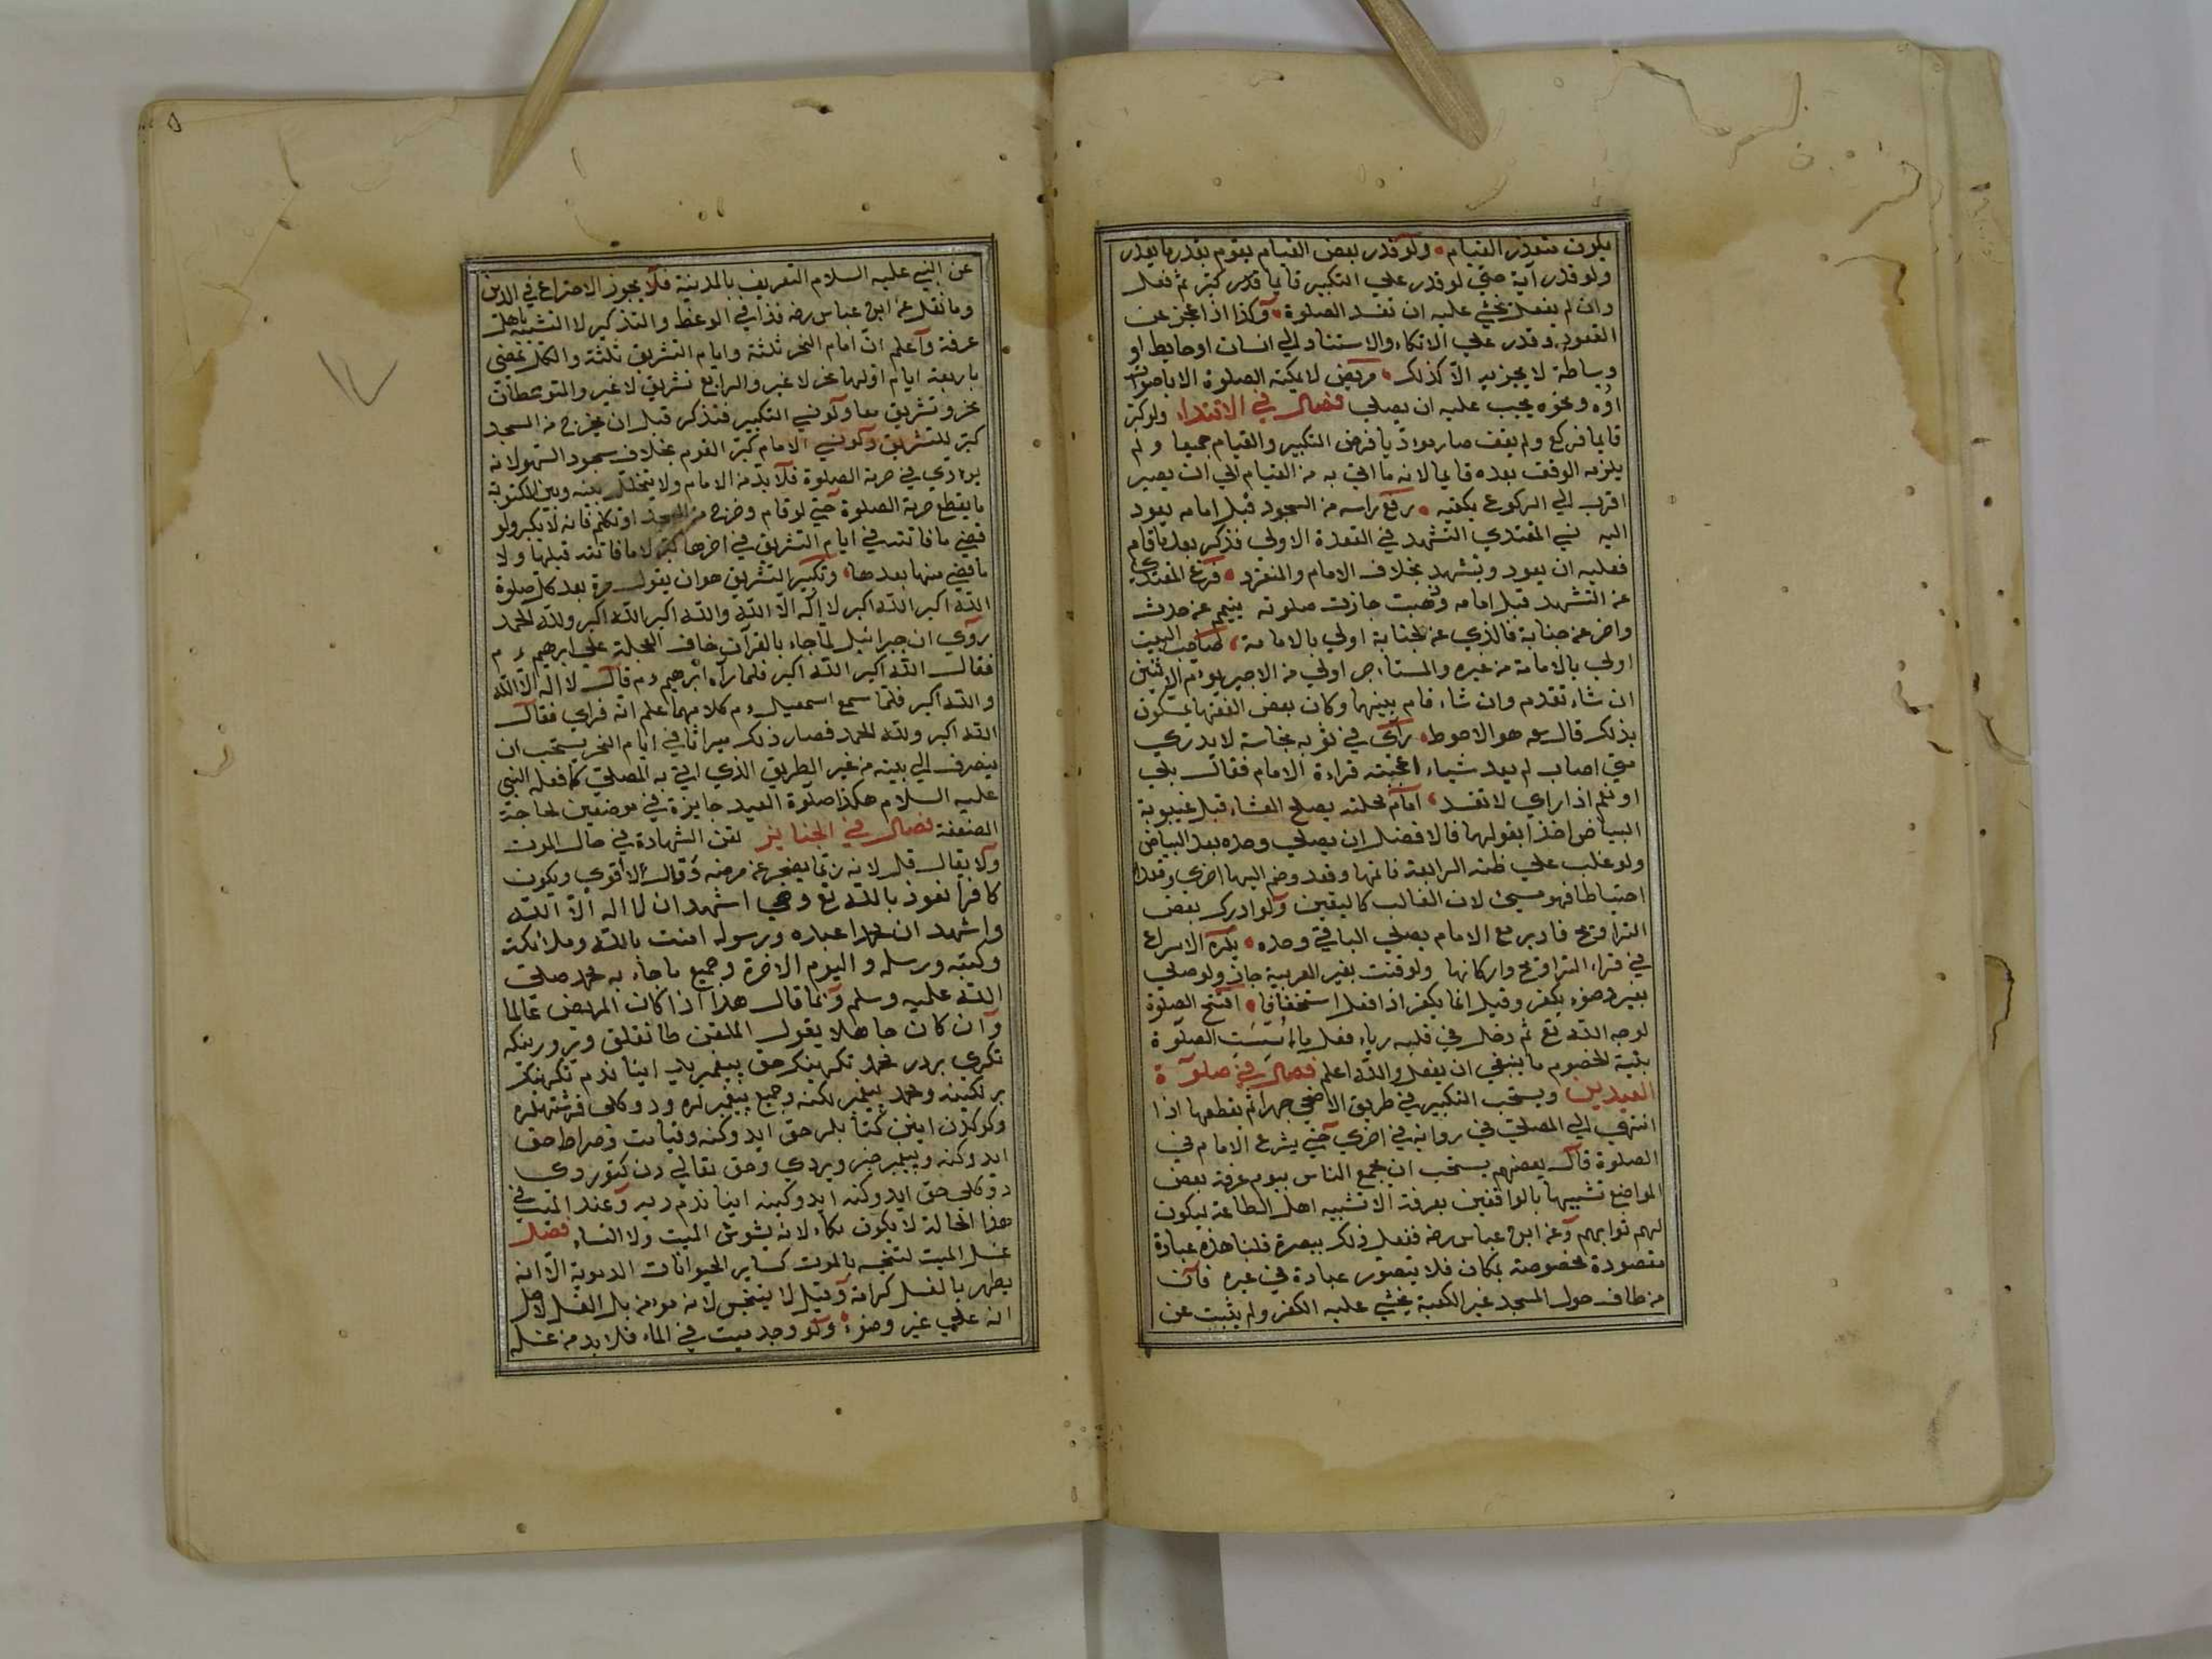 يكون متعذر القيام ولو قدر بعض القيام يقوم بقدر ما يقدر
ولو قدر آية حتي لو قدر علي التكبير قايما قدر كبر ثم فعل
وان لم يفعل يخشي عليه ان تفسد الصلوة وكذا اذا عجز عن
القعود وقدر علي الاتكاء والاستناد الي انسان او حايط او
وسادة لا يجزيه الا كذلك مريض لا يمكنه الصلوة الا باصوات
اوه ونحوه يجب عليه ان يصلي فصل في الاقتداء ولو كبر
قايما فركع ولم يقف صار مؤديا فرض التكبير والقيام جميعا ولم
يلزمه الوقف بعده قايما لانه ما اتي به من القيام الي ان يصير
اقرب الي الركوع يكفيه رفع راسه من السجود قبل امامه يعود
اليه نسي المقتدي التشهد في القعدة الاولي فذكر بعد ما قام
فعليه ان يعود ويتشهد بخلاف الامام والمنفرد فرغ المقتدي
عن التشهد قبل امامه وذهب جازت صلوته يتيمم عن حدث
واخر عن جنابة فالذي عن الجنابة اولي بالامامة صاحب البيت
اولي بالامامة من غيره والمستاجر اولي من الاجير يوم الاثنين
ان شاء تقدم وان شاء قام بينهما وكان بعض الفقهاء يمسكون
بذلك قال هو الاحوط رأي في ثوبه نجاسة لا يدري
متي اصاب لم يعد شياء اعجبته قراءة الامام فقال بلي
او نعم اذا راي لا تفسد امام محلته يصلح العشاء قبل غيبوبة
البياض اخذا بقولهما فالافضل ان يصلي وحده بعد البياض
ولو غلب علي ظنه الرابعة فاتمها وقعد وضم اليها اخري وقعد
احتياطا فهو مسيئ لان الغالب كاليقين ولو ادرك بعض
التراويح فاوتر مع الامام يصلي الباقي وحده يكره الاسراع
في قراءة التراويح واركانها ولو قنت بغير العربية جاز ولو صلي
بغير وضوء يكفر وقيل انما يكفر اذا فعل استخفافا افتتح الصلوة
لوجه الله تع ثم دخل في قلبه رياء فعلي ما اسست الصلوة
بنية الخصوم ما ينبغي ان يفعل والله اعلم فصل في صلوة
العيدين ويستحب التكبير في طريق الاضحي جهرا ثم يقطعها اذا
انتهي الي المصلي في رواية في اخري حتي يشرع الامام في
الصلوة قال بعضهم يستحب ان يجمع الناس بيوم عرفة بعض
المواضع تشبيها بالواقفين بعرفة الا تشبيه اهل الطاعة ليكون
لهم ثوابهم وعن ابن عباس رضه فعل ذلك ببصرة قلنا هذه عبادة
مقصودة مخصوصة بمكان فلا يتصور عبادة في غيره فان
من طاف حول المسجد غير الكعبة يخشي عليه الكفر ولم يثبت عن
عن النبي عليه السلام التعريف بالمدينة فلا يجوز الاختراع في الدين
وما نقل عن ابن عباس رضه فذا في الوعظ والتذكير لا التشبيه باهل
عرفة وأعلم ان ايام النحر ثلثة وايام التشريق ثلثة والكل يمضي
باربعة ايام اولها نحر لا غير والرابع تشريق لا غير والمتوسطات
نحر وتشريق معا ولو نسي التكبير فتذكر قبل ان يخرج من المسجد
كبر للتشريق ولو نسي الامام كبر القوم بخلاف سجود السهو لانه
يؤدي في حرمة الصلوة فلا بد من الامام ولا يتخلل بينه وبين المكتوبة
ما يقطع حرمة الصلوة حتي لو قام وخرج من المسجد او تكلم فانه لا يكبر ولو
قضي ما فاتته في ايام التشريق في اخرها كبر لا ما فاتته قبلها ولا
ما قضي منها بعدها وتكبير التشريق هو ان يقول مرة بعد كل صلوة
الله اكبر الله اكبر لا اله الا الله والله اكبر الله اكبر ولله الحمد
روي ان جبرائيل لما جاء بالقرآن خاف العجلة علي ابرهيم ءم
فقال الله اكبر الله اكبر فلما رآه ابرهيم ءم قال لا اله الا الله
والله اكبر فلما سمع اسمعيل ءم كلامهما علم انه فداي فقال
الله اكبر ولله الحمد فصار ذلك ميراثا في ايام النحر يستحب ان
ينصرف الي بيته من غير الطريق الذي اتي به المصلي كما فعله النبي
عليه السلام هكذا صلوة العيد جايزة في موضعين لحاجة
الضعفة فصل في الجنايز لقن الشهادة في حال الموت
ولا يقال قل لانه ربما يضجر عن مرضه وقال لا اقوي ويكون
كافرا نعوذ بالله تع وهي اشهد ان لا اله الا الله
واشهد ان محمدا عبده ورسوله امنت بالله وملائكته
وكتبه ورسله واليوم الاخرة وجميع ما جاء به محمد صلي
الله عليه وسلم وانما قال هذا اذا كان المريض عالما
وان كان جاهلا يقول الملقن طانقلق ويرورينكه
تكري بردر محمد تكرينك حق پيغمبريدر ايناندم تكرينك
برلكينه ومحمد پيغمبرلكنه وجميع پيغمبرلره ودوكلي فرشتهلره
وكوكدن اينن كتابلر حق ايدوكنه وقيامت وصراط حق
ايدوكنه وپيغمبر خبر ويردي وحق تعالي دن كتوردي
دوكلي حق ايدوكنه ايدوكينه ايناندم ديه وعند الميت في
هذا الحالة لا يكون بكاء لانه يشوش الميت ولا النساء فصل
غسل الميت لتنجسه بالموت كساير الحيوانات الدموية الا انه
يطهر بالغسل كرامة وقيل لا ينجس لانه مؤمن بل الغسل لاجل
انه علي غير وضوء ولو وجد ميت في الماء فلا بد من غسله